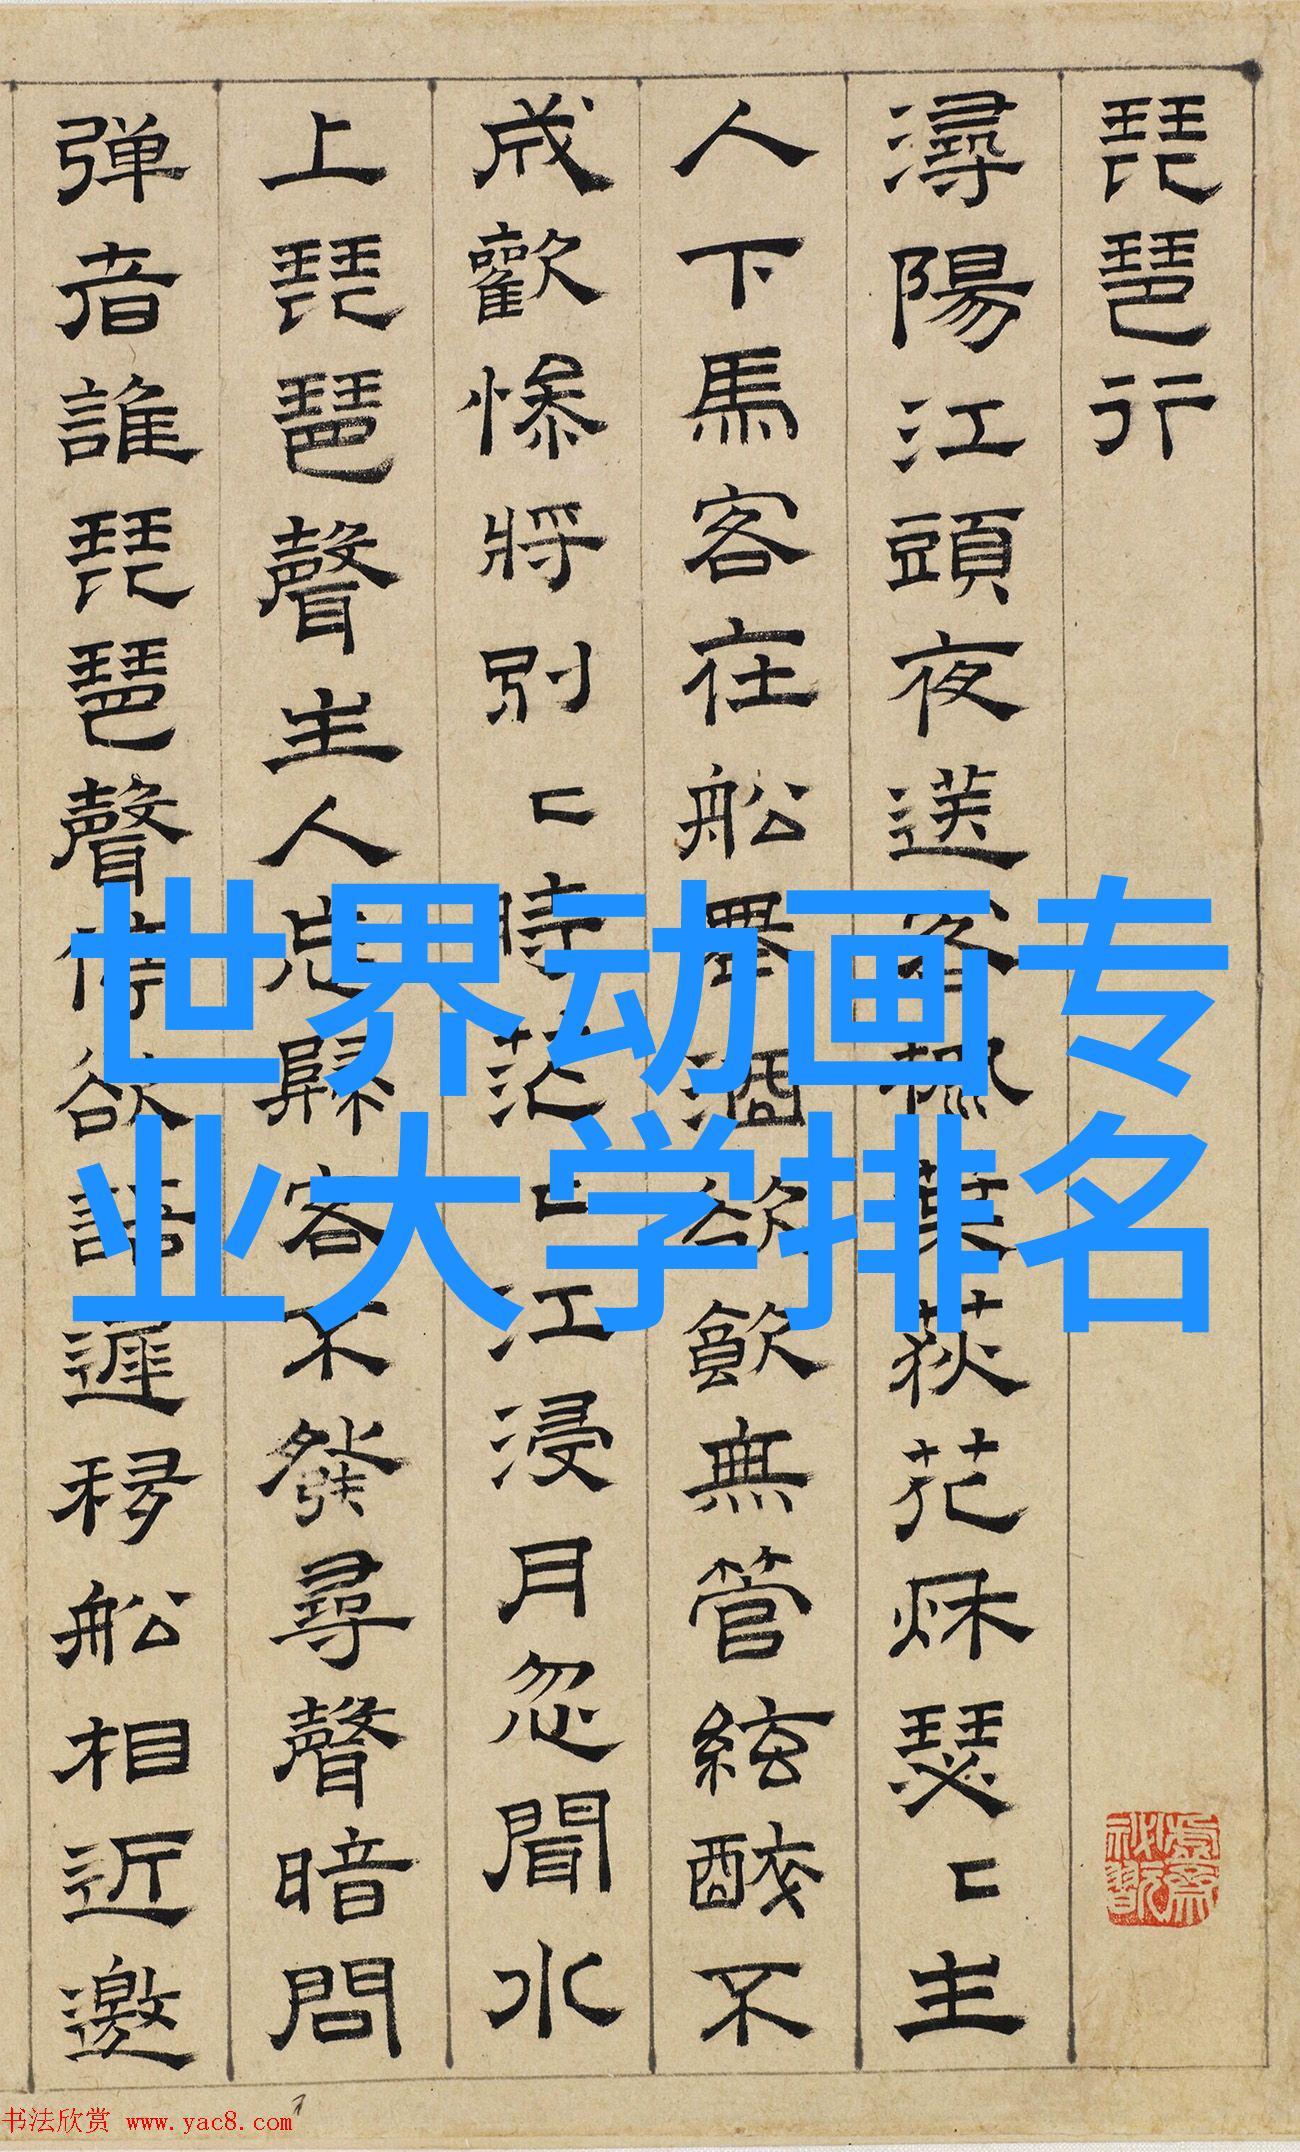 琵琶行
潯陽江頭夜送客楓葉荻花秌瑟〻主
人下馬客在船舉酒欲飲無管絃醉不
成歡慘將別〻時茫〻江浸月忽聞水
上琵琶聲主人忘歸客不發尋聲暗問
弹者誰琵琶聲停欲語遲移船相近邀
世界动画专
业大学排名
书法欣赏 www.yac8.com